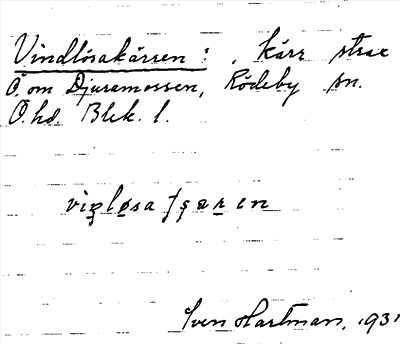 Vindlösakärren: , kärr strax
Ö. om Djuramossen, Rödeby sn.
Ö. hd. Blek. l.
Sven Hartman, 1931